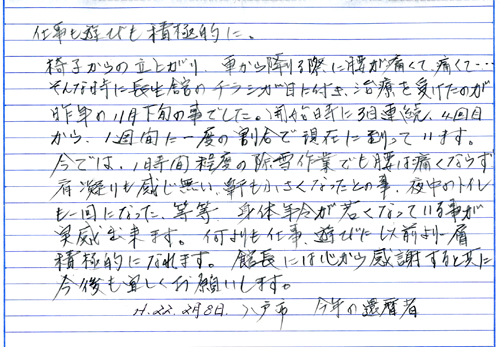 仕事も遊びも積極的に。
椅子からの立上がり、車から降りる際に腰が痛くて、痛くて…
そんな時に長生舘のチラシが目に付き、治療を受けたのが
昨年の11月下旬の事でした。開始時に3日連続、4回目
から、1週間に一度の割合で現在に到っています。
今では、1時間程度の除雪作業でも腰は痛くならず
肩凝りも感じ無い、軒もかさくなったとの事、夜中のトイレ
も一回になった、等等、身体年令が若くなっている事が
実感出来ます。何よりも仕事、遊びに以前より一層
積極的になれます。館長には心から感謝すると共に
今後も宜しくお願いします。
H.22.2月8日、八戸市 今年の還暦者